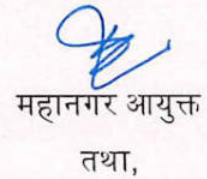 महानगर आयुक्त
तथा,